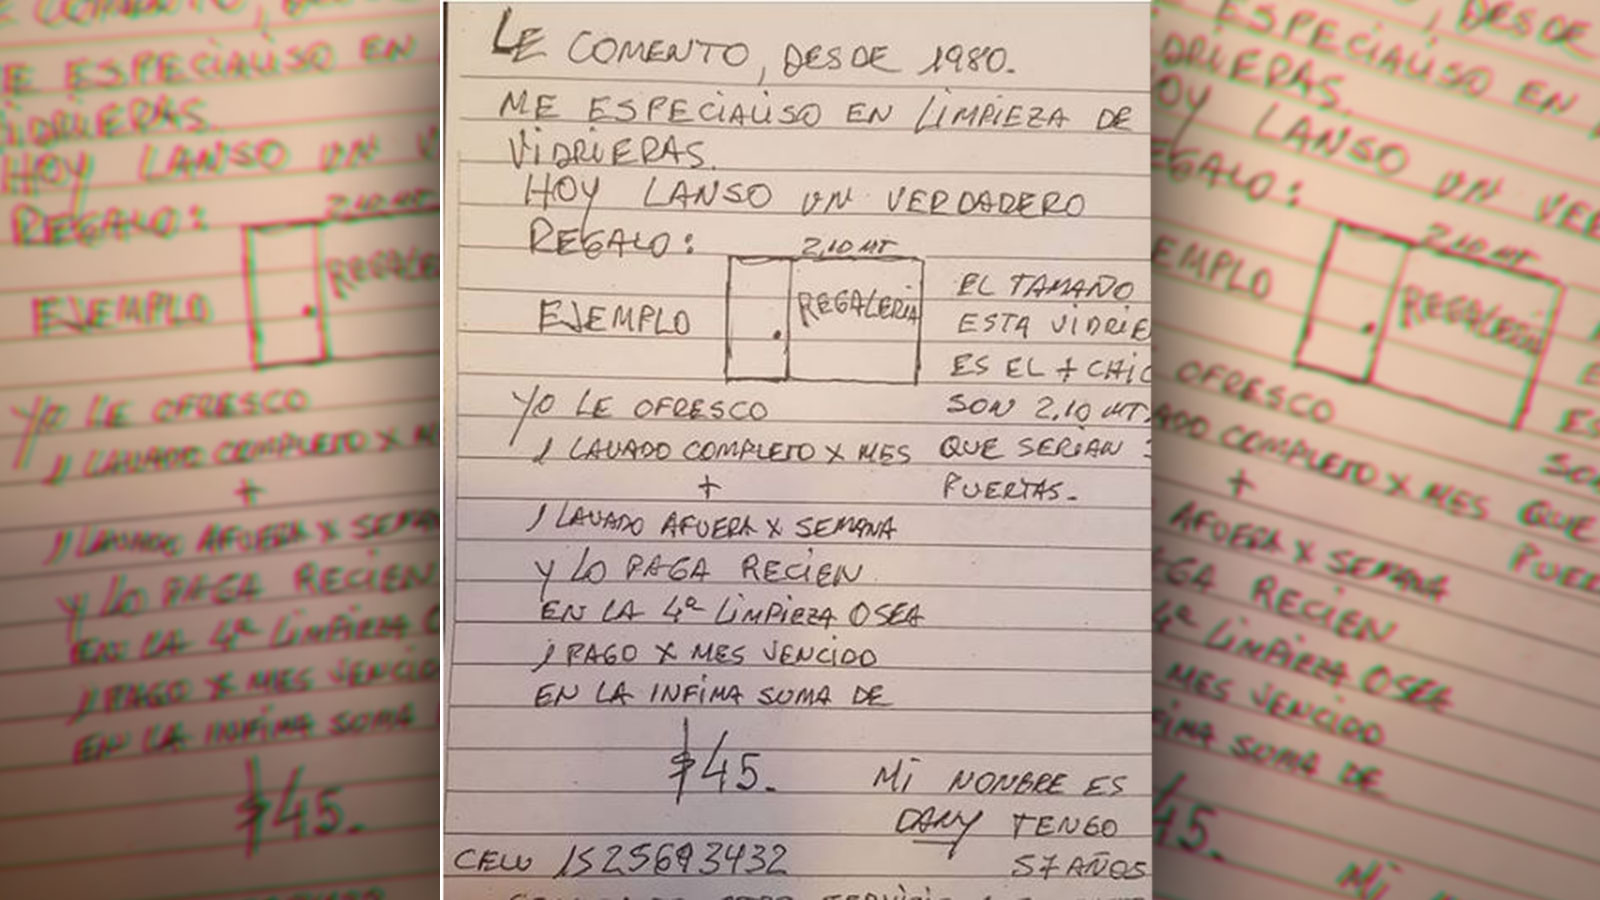 LE COMENTO, DESDE 1980.
ME ESPECIALISO EN LIMPIEZA DE
VIDRIERAS.
HOY LANSO UN VERDADERO
REGALO:
2,10 MT
EJEMPLO
REGALERIA
EL TAMAÑO
ESTA VIDRIE
ES EL + CHIC
SON 2,10 MT,
QUE SERIAN
PUERTAS.
YO LE OFRESCO
1 LAVADO COMPLETO X MES
+
1 LAVADO AFUERA X SEMANA
Y LO PAGA RECIEN
EN LA 4ª LIMPIEZA OSEA
1 PAGO X MES VENCIDO
EN LA INFIMA SUMA DE
$45.
MI NONBRE ES
DANY TENGO
57 AÑOS
CELU